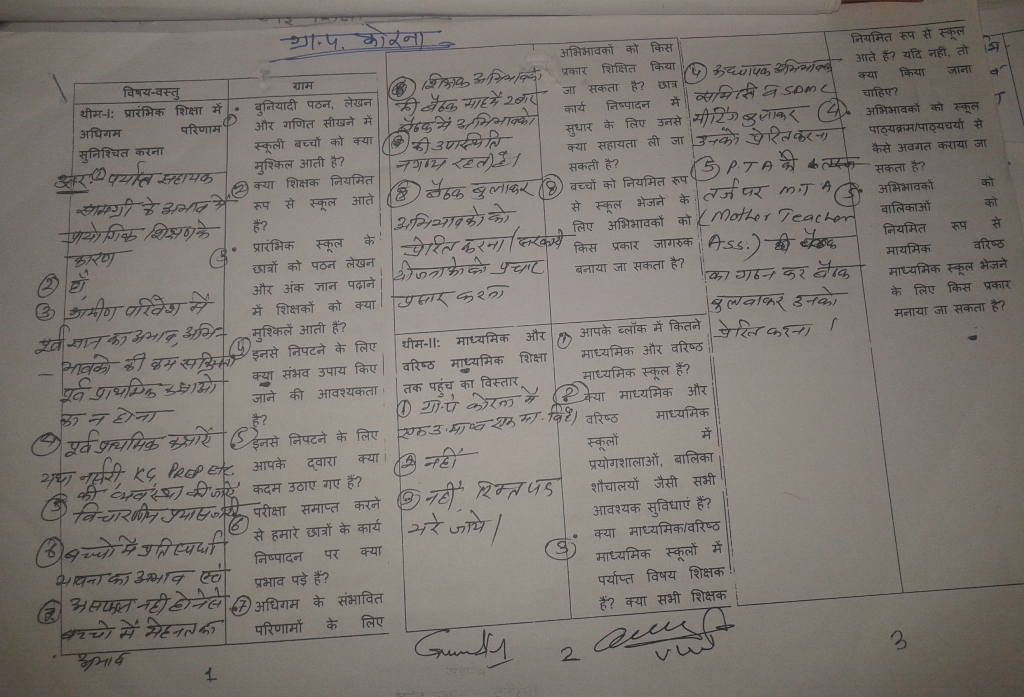 ग्रा.पं. कोरना
विषय-वस्तु
थीम-I: प्रारंभिक शिक्षा में
अधिगम परिणाम
सुनिश्चित करना
उत्तर① पर्याप्त सहायक
सामग्री के अभाव में
प्रायोगिक शिक्षण के
कारण
② हाँ
③ ग्रामीण परिवेश में
पूर्व ज्ञान का अभाव, अभि-
भावको की कम सक्रियता
पूर्व प्राथमिक कक्षाओं
का न होना
④ पूर्व प्राथमिक कक्षाऐं
यथा नर्सरी, KG, PREP etc
की व्यवस्था की जाऐं
⑤ विचारणीय प्रयास जारी
⑥ बच्चों में प्रतिस्पर्धा
भावना का अभाव एवं
⑦ असफल नहीं होने से
बच्चों में मेहनत का
अभाव
1
ग्राम
① बुनियादी पठन, लेखन
और गणित सीखने में
स्कूली बच्चों को क्या
मुश्किल आती है?
② क्या शिक्षक नियमित
रूप से स्कूल आते
हैं?
③ प्रारंभिक स्कूल के
छात्रों को पठन लेखन
और अंक ज्ञान पढ़ाने
में शिक्षकों को क्या
मुश्किलें आती हैं?
④ इनसे निपटने के लिए
क्या संभव उपाय किए
जाने की आवश्यकता
है?
⑤ इनसे निपटने के लिए
आपके द्वारा क्या
कदम उठाए गए हैं?
⑥ परीक्षा समाप्त करने
से हमारे छात्रों के कार्य
निष्पादन पर क्या
प्रभाव पड़े हैं?
⑦ अधिगम के संभावित
परिणामों के लिए
शिक्षक अभिभावको
की बैठक माह में 2 बार
बैठक में अभिभावको
की उपस्थिति
नगण्य रहती है।
⑧ बैठक बुलाकर
अभिभावको को
प्रेरित करना / सरकारी
योजनाओं के प्रचार
प्रसार करना
थीम-II: माध्यमिक और
वरिष्ठ माध्यमिक शिक्षा
तक पहुंच का विस्तार
① ग्रा.पं कोरना में
एक उ.मा.व एक मा.वि है।
② नहीं
③ नहीं, रिक्त पद
भरे जाये।
अभिभावकों को किस
प्रकार शिक्षित किया
जा सकता है? छात्र
कार्य निष्पादन में
सुधार के लिए उनसे
क्या सहायता ली जा
सकती है?
⑧ बच्चों को नियमित रूप
से स्कूल भेजने के
लिए अभिभावकों को
किस प्रकार जागरुक
बनाया जा सकता है?
① आपके ब्लॉक में कितने
माध्यमिक और वरिष्ठ
माध्यमिक स्कूल हैं?
② क्या माध्यमिक और
वरिष्ठ माध्यमिक
स्कूलों में
प्रयोगशालाओं, बालिका
शौचालयों जैसी सभी
आवश्यक सुविधाएं हैं?
③ क्या माध्यमिक/वरिष्ठ
माध्यमिक स्कूलों में
पर्याप्त विषय शिक्षक
हैं? क्या सभी शिक्षक
2
④ अध्यापक अभिभावक
समिति व SDMC
मीटिंग बुलाकर
उनको प्रेरित करना
⑤ PTA की
तर्ज पर MTA
(Mother Teacher
Ass.)
का गठन कर बैठक
बुलवाकर इनको
प्रेरित करना।
नियमित रूप से स्कूल
आते हैं? यदि नहीं, तो
क्या किया जाना
चाहिए?
④ अभिभावकों को स्कूल
पाठ्यक्रम/पाठ्यचर्या से
कैसे अवगत कराया जा
सकता है?
⑤ अभिभावकों को
बालिकाओं को
नियमित रूप से
मायमिक वरिष्ठ
माध्यमिक स्कूल भेजने
के लिए किस प्रकार
मनाया जा सकता है?
3